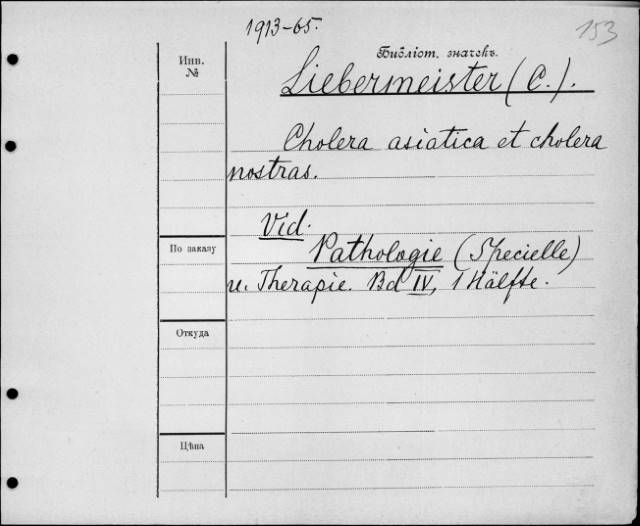 1913-65.
153
Инв.
№
Библіот. значекъ.
Liebermeister (C.).
Cholera asiatica et cholera
nostras.
Vid.
Pathologie (Specielle)
По заказу
u. Therapie. Bd IV, 1 Hälfte.
Откуда
Цѣна